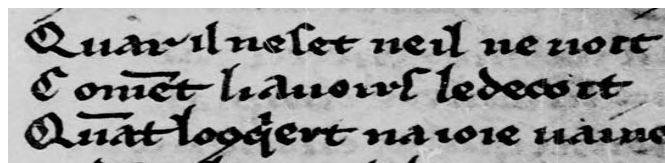 Quar il ne set ne il ne uoit
Coment li auoirs le decoit
Quāt logq̄ert na ioie uaine